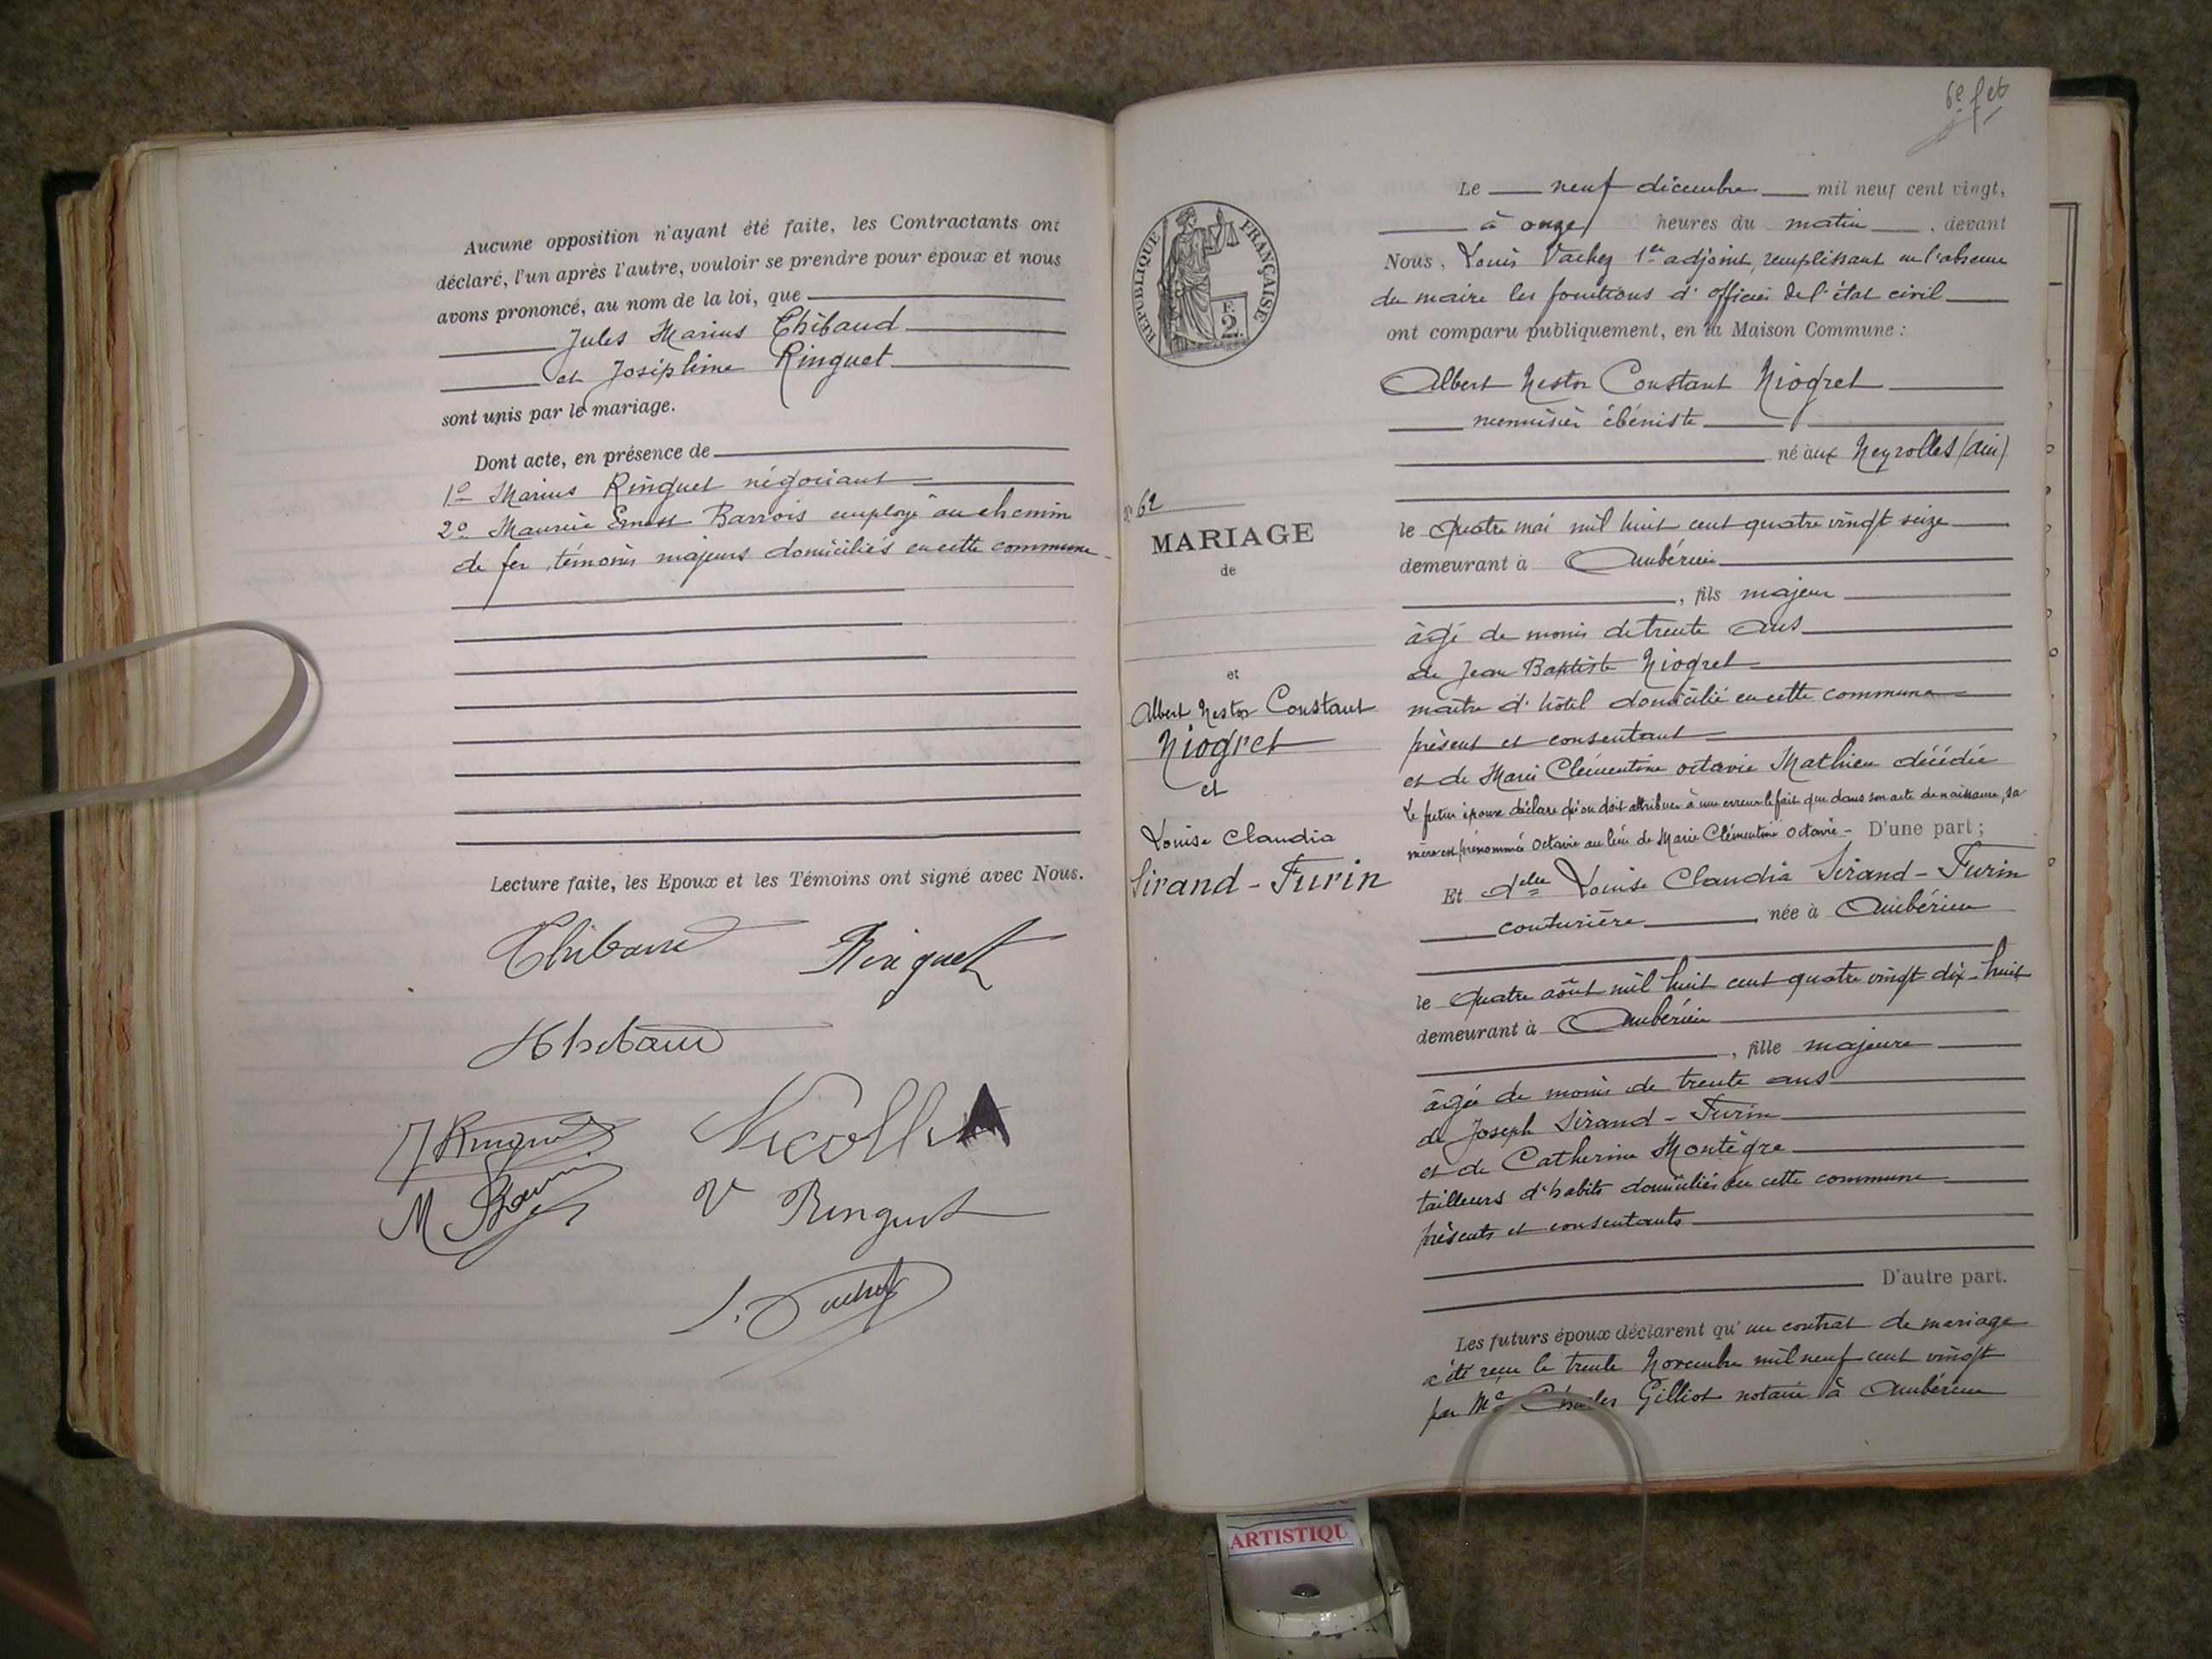 Aucune opposition n'ayant été faite, les Contractants ont
déclaré, l'un après l'autre, vouloir se prendre pour époux et nous
avons prononcé, au nom de la loi, que
Jules Marius Thibaud
et Joséphine Ringuet
sont unis par le mariage.
Dont acte, en présence de
1º Marius Ringuet négociant
2º Maurice Ernest Barrois employé au chemin
de fer, témoins majeurs domiciliés en cette commune
Lecture faite, les Epoux et les Témoins ont signé avec Nous.
Thibaud Ringuet
Thibaud
Ringuet
M
V Ringuet
6e fet
Le neuf décembre mil neuf cent vingt,
à onze heures du matin, devant
Nous, Louis Vachez 1er adjoint, remplissant en l'absence
du maire les fonctions d'officier de l'état civil
ont comparu publiquement, en la Maison Commune :
Albert Nestor Constant Niogret
menuisier ébéniste
né aux Neyrolles (Ain)
le quatre mai mil huit cent quatre vingt seize
demeurant à Ambérieu
, fils majeur
âgé de moins de trente ans
de Jean Baptiste Niogret
maître d'hôtel domicilié en cette commune
présent et consentant
et de Marie Clémentine Octavie Mathieu décédée
Le futur époux déclare qu'on doit attribuer à une erreur le fait que dans son acte de naissance, sa
mère est prénommée Octavie au lieu de Marie Clémentine Octavie - D'une part ;
Et delle Louise Claudia Sirand-Furin
couturière, née à Ambérieu
le quatre août mil huit cent quatre vingt dix-huit
demeurant à Ambérieu
, fille majeure
âgée de moins de trente ans
de Joseph Sirand-Furin
et de Catherine Montègre
tailleurs d'habits domiciliés en cette commune
présents et consentants
D'autre part.
Les futurs époux déclarent qu'un contrat de mariage
a été reçu le trente Novembre mil neuf cent vingt
par Me Charles Gilliot notaire à Ambérieu
REPUBLIQUE FRANÇAISE
F.
2.
Nº 62
MARIAGE
de
et
Albert Nestor Constant
Niogret
et
Louise Claudia
Sirand-Furin
ARTISTIQU